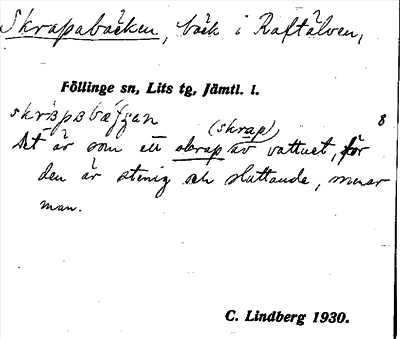 Skrapabäcken, bäck i Raftälven,
Föllinge sn, Lits tg, Jämtl. l.
8
(skrap)
Det är som ett skrap av vattnet, för
den är stenig och sluttande, menar
man.
C. Lindberg 1930.